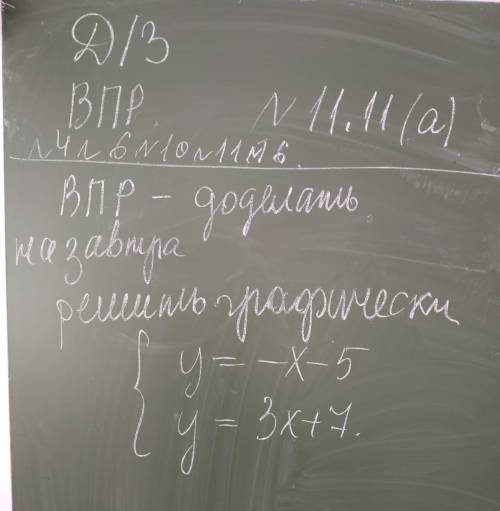 Д/З
ВПР. N 11.11 (а)
N4 N6 N10 N11 N
ВПР – доделать
на завтра
решить графически
y = -x - 5
y = 3x + 7.